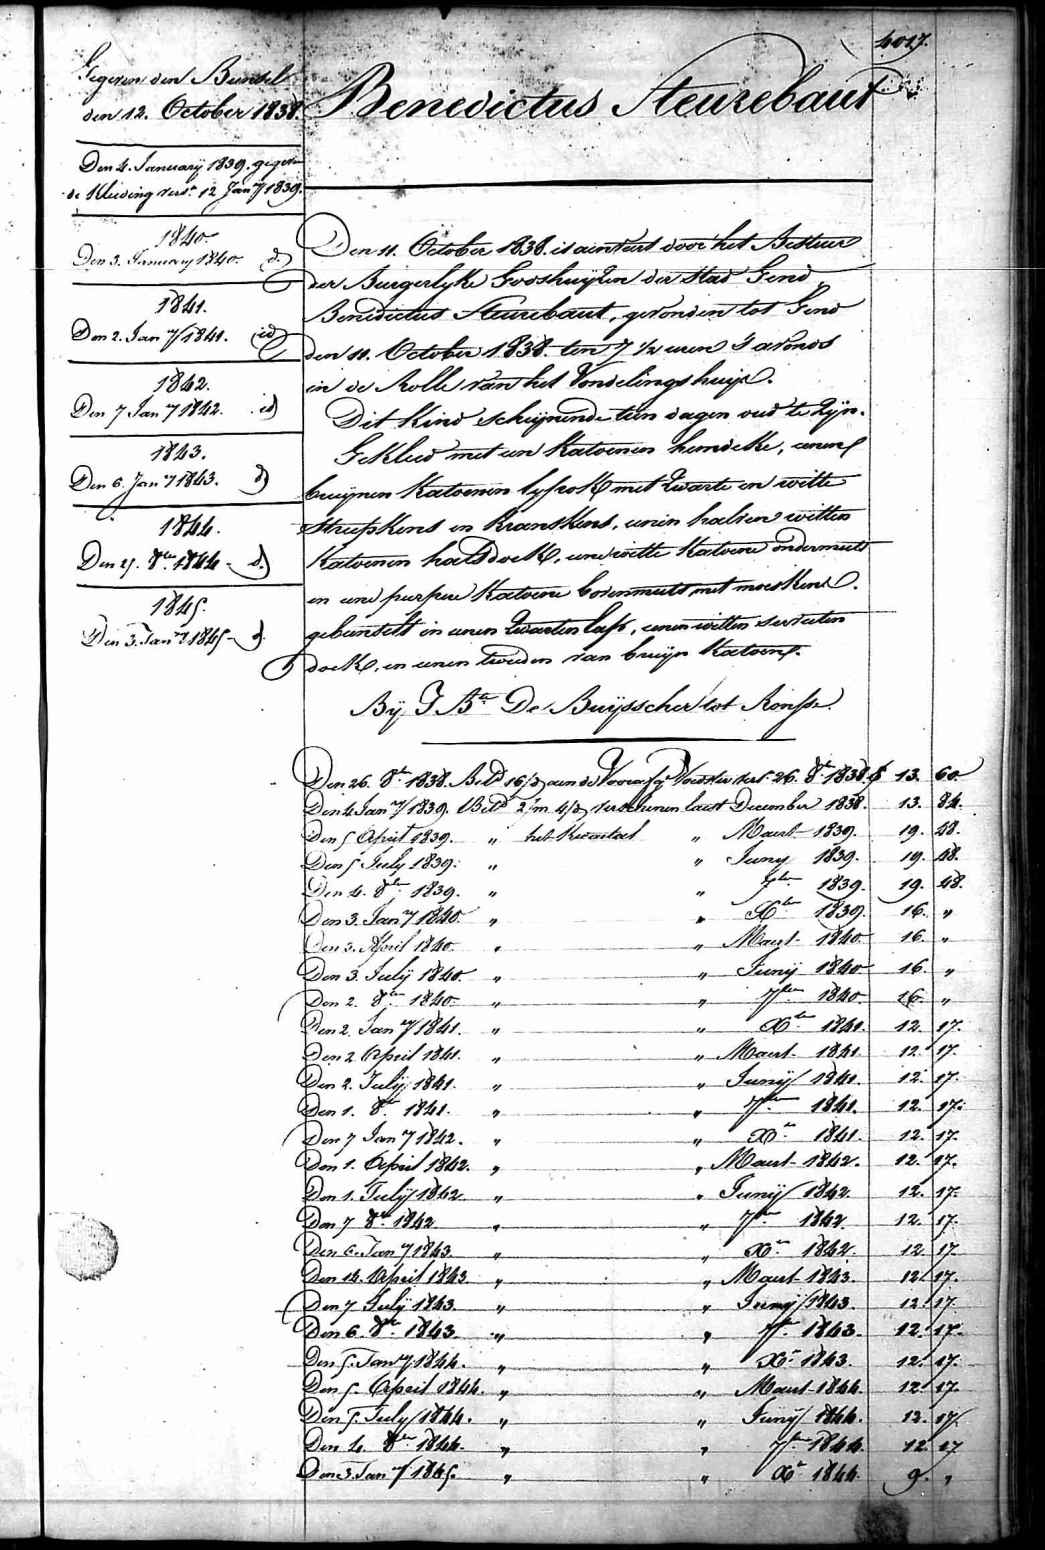 4017.
Gegeven den Bundel
den 12. October 1838.
Den 4. January 1839. gegeven
de Kleeding vers.^t 12 Jan^y 1839.
1840.
Den 3. January 1840. d.
1841.
Den 2. Jan^y 1841. id
1842.
Den 7 Jan^y 1842. id
1843.
Den 6. Jan^y 1843. d)
1844.
Den 25. 8^ber 1844 - d.)
1845.
Den 3. Jan^y 1845 - d.
Benedictus Steurebaut
Den 11. October 1838. is aenveert door het Bestuer
der Burgerlyke Godshuyzen der Stad Gend
Benedictus Steurebaut, gevonden tot Gend
den 11. October 1838. ten 7 1/2 uren s'avonds
in de Rolle van het Vondelingshuys.
Dit kind schynende tien dagen oud te zyn.
Gekleed met een katoenen hemdeke, eenen
bruynen katoenen lyfrok met zwarte en witte
streepkens en kranskens, eenen halven witten
katoenen halsdoek, eene witte katoene ondermuts
en eene purpere katoene bovenmuts met moeskens.
gebunselt in eenen zwarten lap, eenen witten servieten
doek, en eenen tweeden van bruyn katoen.
By J. B^te De Buysscher tot Ronsse.
Den 26. 8^br 1838. Bet^d 16/d aen de Voedster vers^t 26. 8^br 1838. f 13. 60.
Den 4. Jan^y 1839. Bet^d 2/m 4/d verschenen laest December 1838. 13. 84.
Den 5 April 1839. " het Kwartael " Maert 1839. 19. 48.
Den 5 July 1839. " " Juny 1839. 19. 48.
Den 4. 8^ber 1839. " " 7^ber 1839. 19. 48.
Den 3. Jan^y 1840. " " X^ber 1839. 16. "
Den 3. April 1840. " " Maert 1840. 16. "
Den 3. July 1840. " " Juny 1840 16. "
Den 2. 8^ber 1840. " " 7^ber 1840. 16. "
Den 2. Jan^y 1841. " " X^ber 1840. 12. 17.
Den 2 April 1841. " " Maert 1841. 12. 17.
Den 2. July 1841. " " Juny 1841. 12. 17.
Den 1. 8^br 1841. " " 7^ber 1841. 12. 17.
Den 7 Jan^y 1842. " " X^br 1841. 12. 17.
Den 1. April 1842. " " Maert 1842. 12. 17.
Den 1. July 1842. " " Juny 1842. 12. 17.
Den 7 8^br 1842 " " 7^ber 1842. 12. 17.
Den 6. Jan^y 1843. " " X^br 1842. 12. 17
Den 14. April 1843 " " Maert 1843. 12. 17.
Den 7 July 1843. " " Juny 1843. 12. 17.
Den 6. 8^br 1843. " " 7^br 1843. 12. 17.
Den 5. Jan^y 1844. " " X^r 1843. 12. 17.
Den 5. April 1844. " " Maert 1844. 12. 17.
Den 5. July 1844. " " Juny 1844. 12. 17.
Den 4. 8^ber 1844. " " 7^ber 1844. 12. 17
Den 3. Jan^y 1845. " " X^r 1844. 9. "